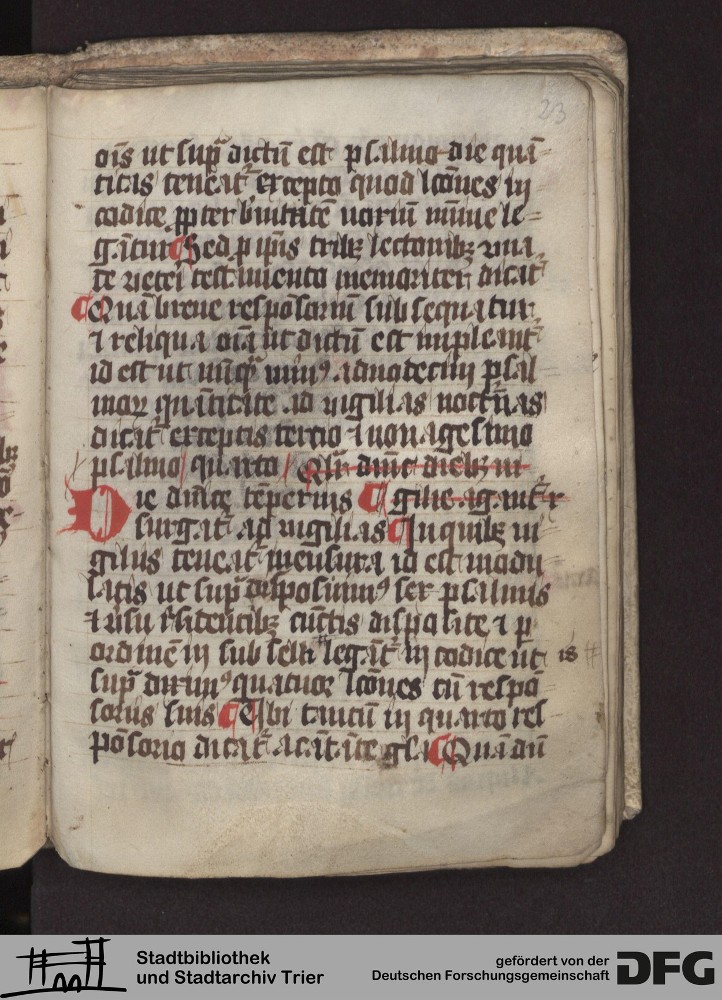 23
oīs ut sup̄ dictū est psalmo die quā
titas teneat᷑ excepto quod lcōnes iij
codice ꝓpter breuitatē noctiū mīme le
gātur Sed ꝓ ip̄is tribꝫ lectonibꝫ vna
de veteri testamento memoriter dicat᷑
Quā breue respōsoriū subsequatur
⁊ reliqua oīa ut dictū est impleant᷑
id est ut nūqꝫ minꝰ a duodecim psal
moꝝ quātitate ad vigilias noct᷑nas
dicat᷑ exceptis tercio ⁊ nonagesimo
psalmo quarto Qlit᷑ dnīc diebꝫ vi
Die dnīco tēperius gilie agant᷑
surgat᷑ ad vigilias In quibꝫ vi
gilijs teneat᷑ mensura id est modu
latis ut sup̄ disposuimꝰ sex psalmis
⁊ v̄su residentibꝫ cūctis disposite ⁊ ꝑ
ordinē in subsellijs legāt᷑ in codice ut
sup̄ diximꝰ quatuor lcōnes cū respō
sorijs suis Vbi tantū in quarto res
pōsorio dicat᷑ a cātāte gla Quā dū
Stadtbibliothek
und Stadtarchiv Trier
gefördert von der
Deutschen Forschungsgemeinschaft
DFG